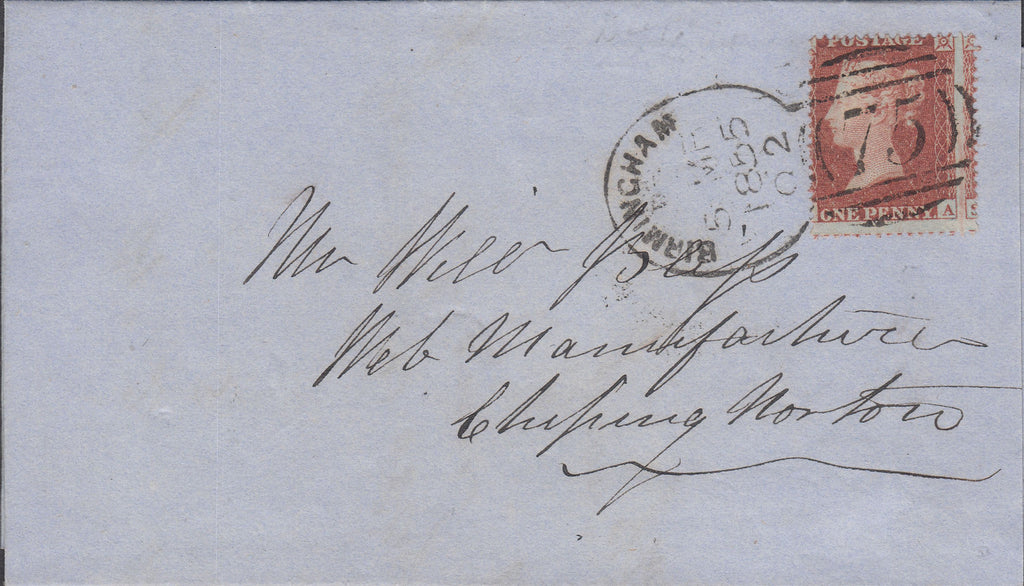 POSTAGE
ONE PENNY A
75
BIRMINGHAM
1855
Mr
Web Manufacturer
Chipping Norton